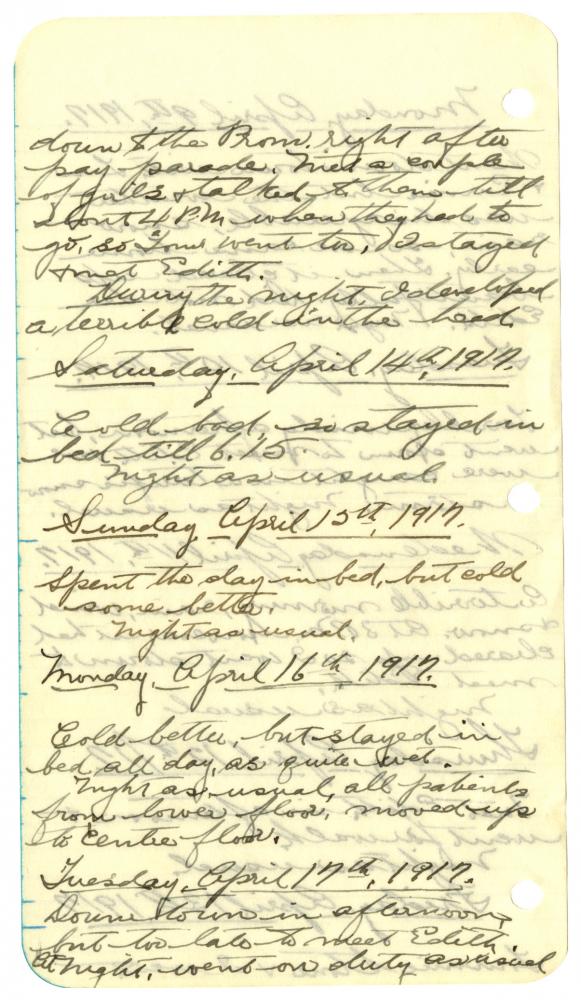 down to the Prom. right after
pay parade. Met a couple
of girls & talked to them till
about 4 P.M. when they had to
go, so Tom went too, I stayed
& met Edith.
During the night, I developed
a terrible cold in the head.
Saturday, April 14th, 1917.
Cold bad, so stayed in
bed till 6.15.
Night as usual.
Sunday April 15th, 1917.
Spent the day in bed, but cold
some better.
Night as usual.
Monday, April 16th, 1917.
Cold better, but stayed in
bed all day, as quite wet.
Night as usual, all patients
from lower floor, moved up
to centre floor.
Tuesday, April 17th, 1917.
Down town in afternoon,
but too late to meet Edith.
At night, went on duty as usual